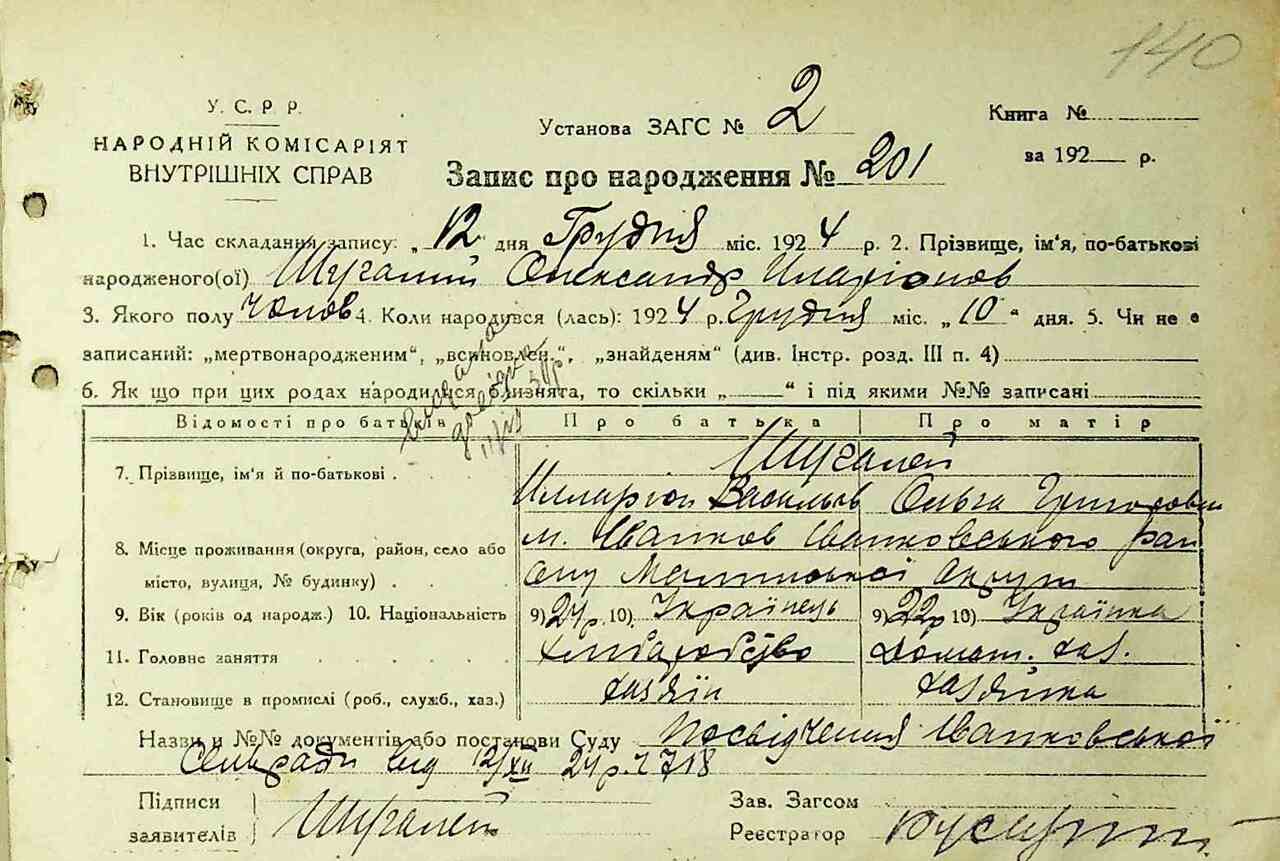 140
У. С. Р. Р.
НАРОДНІЙ КОМІСАРІЯТ
ВНУТРІШНІХ СПРАВ
Установа ЗАГС № 2
Книга №
за 192 р.
Запис про народження № 201
1. Час складання запису: „12" дня Грудня міс. 1924 р. 2. Прізвище, ім'я, по-батькові
народженого(ої) Шугалий Олександр Иларіонов
3. Якого полу Чолов 4. Коли народився (лась): 1924 р. Грудня міс. „10" дня. 5. Чи не є
записаний: „мертвонародженим", „всиновлен.", „знайденям" (див. Інстр. розд. III п. 4)
6. Як що при цих родах народилися близнята, то скільки „ " і під якими №№ записані
Відомості про батьків Про батька Про матір
Шугалей
7. Прізвище, ім'я й по-батькові . Илларіон Васильов Ольга Григоровн
8. Місце проживання (округа, район, село або м. Іванков Іванковського рай
місто, вулиця, № будинку) . . ону округи
9. Вік (років од народж.) 10. Національність 9) 24 р. 10) Українець 9) 22 р 10) Українка
11. Головне заняття хліборобство Домаш. хаз.
12. Становище в промислі (роб., служб., хаз.) хазяїн хазяйка
Назви и №№ документів або постанови Суду Посвідчення Іванковської
Сельради від 12/XII 24 р. 2718
Підписи
заявителів Шугалей
Зав. Загсом
Реєстратор